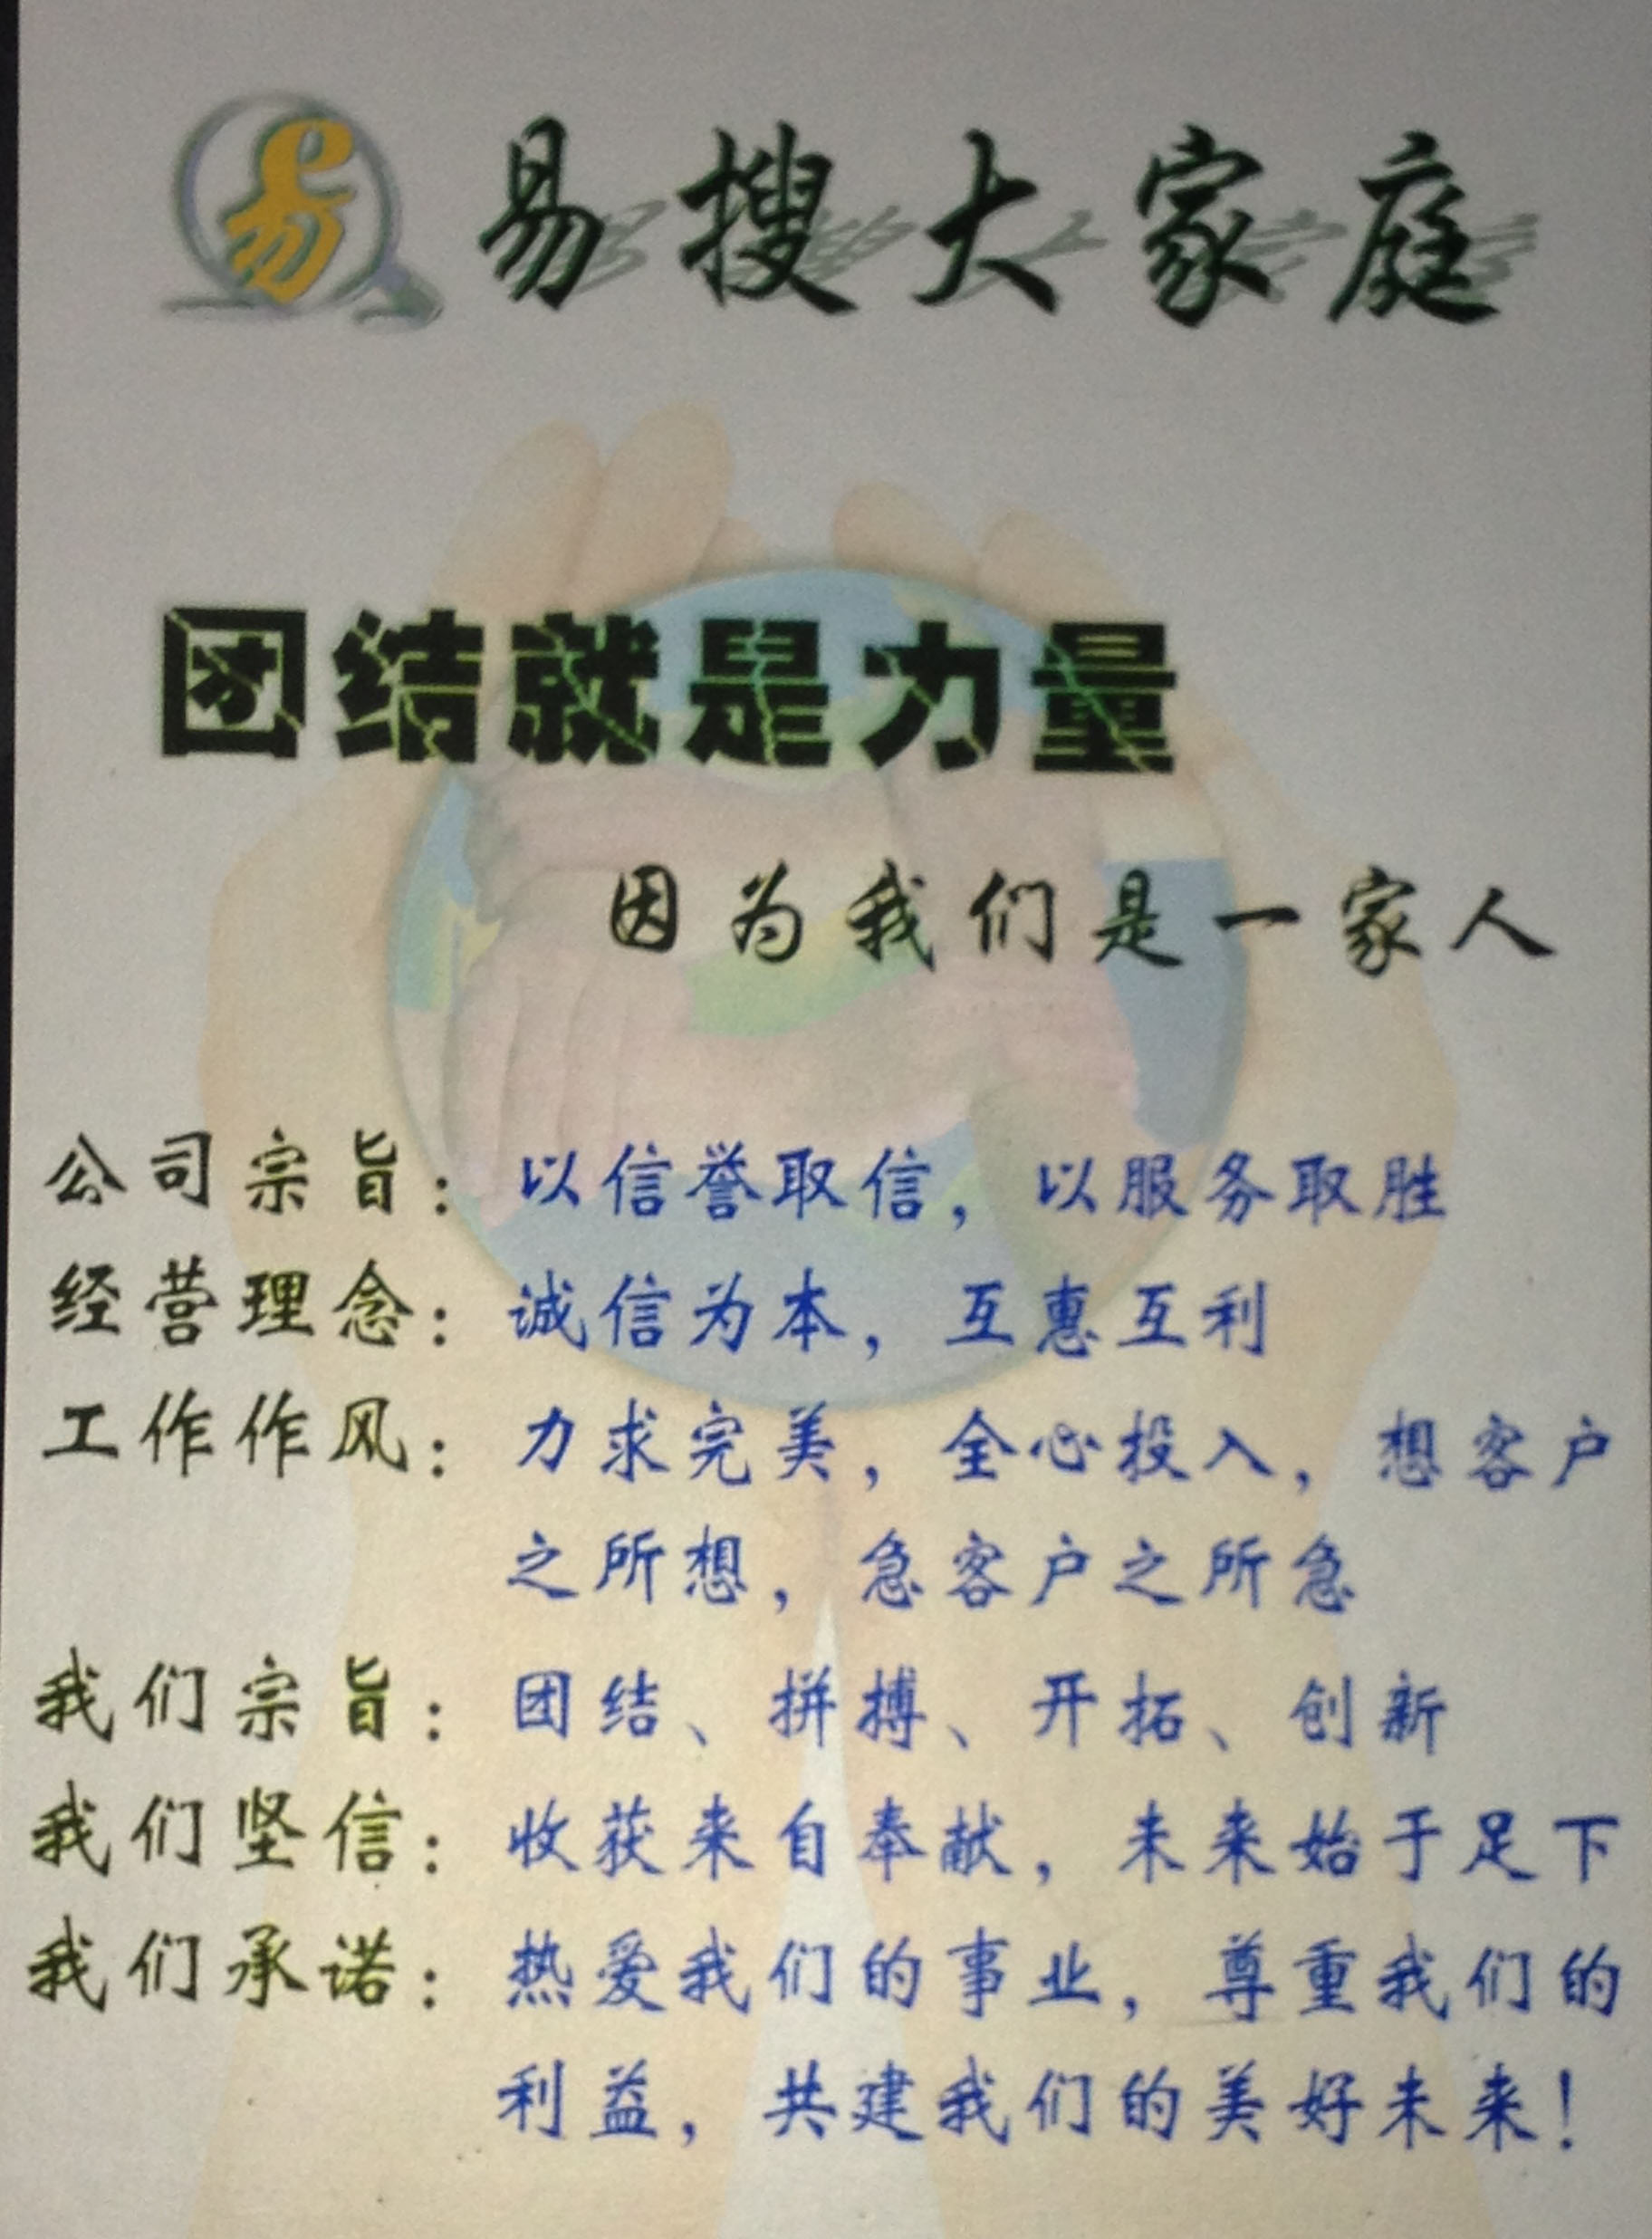 易搜大家庭
团结就是力量
因为我们是一家人
公司宗旨：以信誉取信，以服务取胜
经营理念：诚信为本，互惠互利
工作作风：力求完美，全心投入，想客户
之所想，急客户之所急
我们宗旨：团结、拼搏、开拓、创新
我们坚信：收获来自奉献，未来始于足下
我们承诺：热爱我们的事业，尊重我们的
利益，共建我们的美好未来！